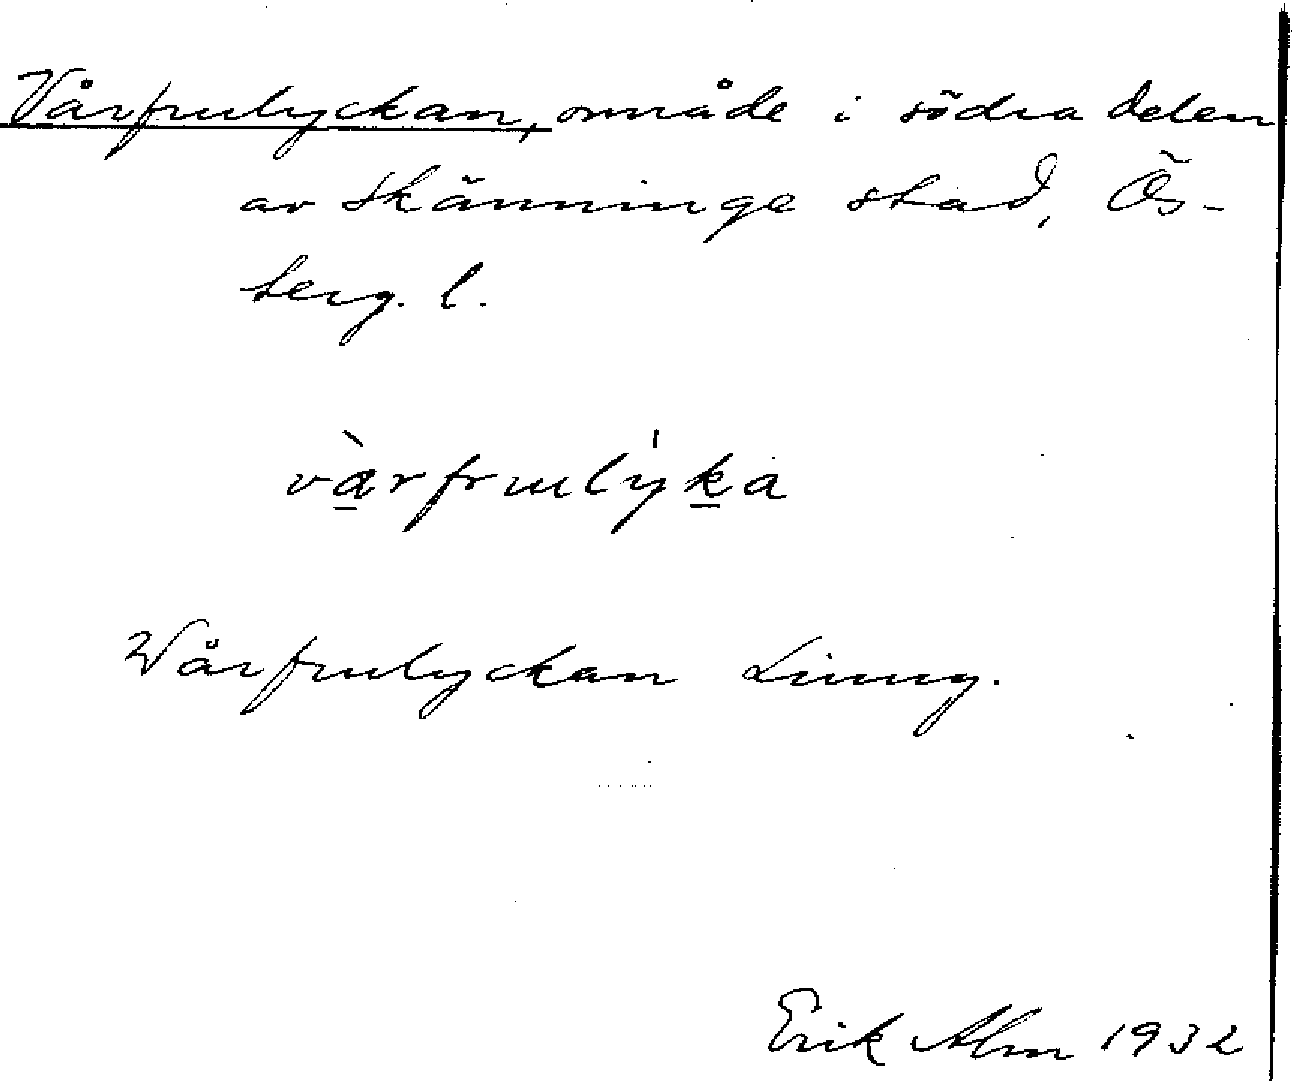 Vårfrulyckan, område i södra delen
av Skänninge stad, Ös-
terg. l.
vàrfrulýka
Wårfrulyckan Linng.
Erik Alm 1932